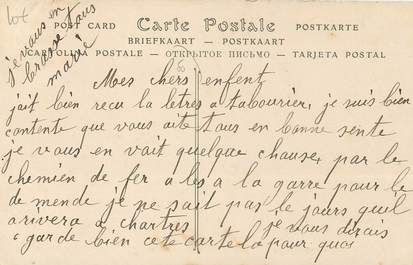 lot
je vous en
brasse tous
marié
POST CARD Carte Postale POSTKARTE
BRIEFKAART — POSTKAART
CARTOLINA POSTALE — ОТКРЫТОЕ ПИСЬМО — TARJETA POSTAL
Mes chers enfent
jait bien recu la letres a tabourier, je suis bien
contente que vous aite tous en bonne sente
je vous en vait quelque chause, par le
chemien de fer a les a la garre pour le
de mende je ne sait pas le jours quil
arivera a chartres je vous dirais
garde bien cete carte la pour quoi